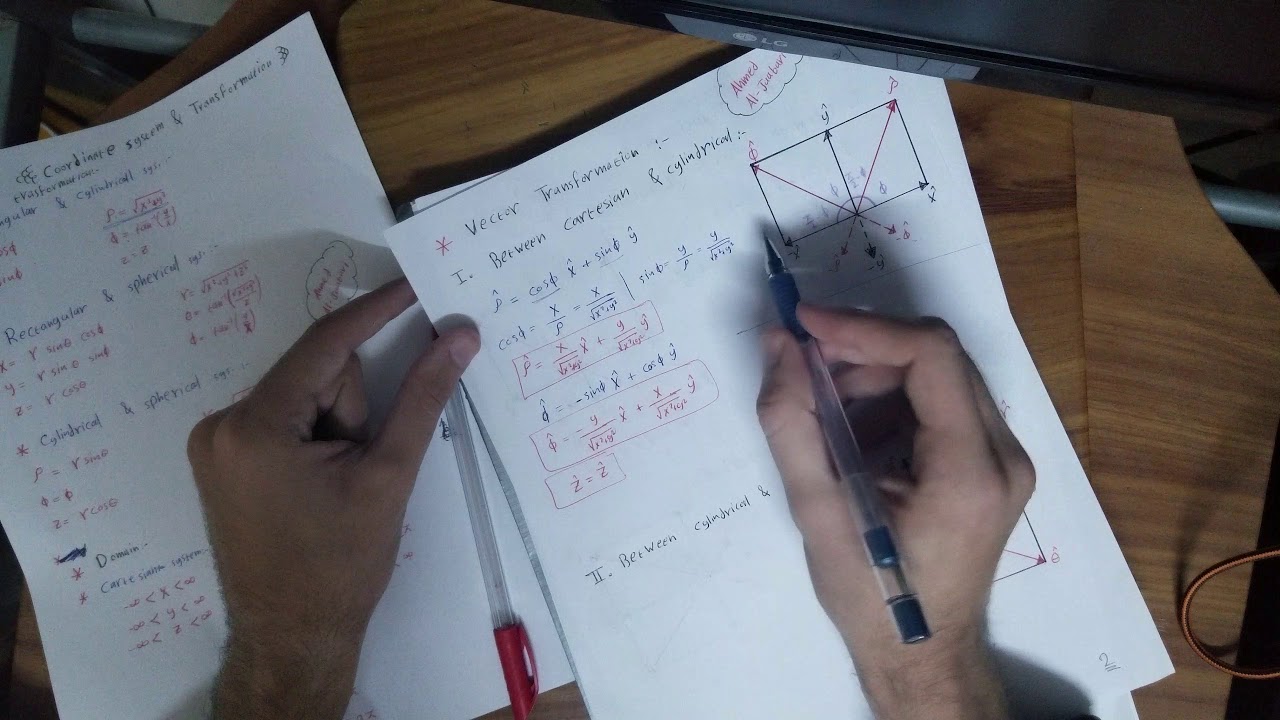 Coordinate system & Transformation
trasformation:-
ngular & cylindrical sys:-
ρ = √x²+y²
φ = tan⁻¹(y/x)
z = z
cosφ
sinφ
Rectangular & spherical sys:-
x = r sinθ cosφ
y = r sinθ sinφ
z = r cosθ
r = √x²+y²+z²
* Cylindrical & spherical sys:-
ρ = r sinθ
φ = φ
z = r cosθ
* Domain:-
* Cartesian system:-
-∞ < x < ∞
-∞ < y < ∞
-∞ < z < ∞
LG
Ahmed
Al-Juabari
* Vector Transformation :-
I. Between cartesian & cylindrical:-
ρ̂ = cosφ x̂ + sinφ ŷ
cosφ = x/ρ = x/√x²+y² | sinφ = y/ρ = y/√x²+y²
ρ̂ = x/√x²+y² x̂ + y/√x²+y² ŷ
φ̂ = -sinφ x̂ + cosφ ŷ
φ̂ = -y/√x²+y² x̂ + x/√x²+y² ŷ
ẑ = ẑ
II. Between cylindrical &
φ̂
ŷ
ρ̂
x̂
φ
-x̂
-ŷ
-φ̂
θ̂
2